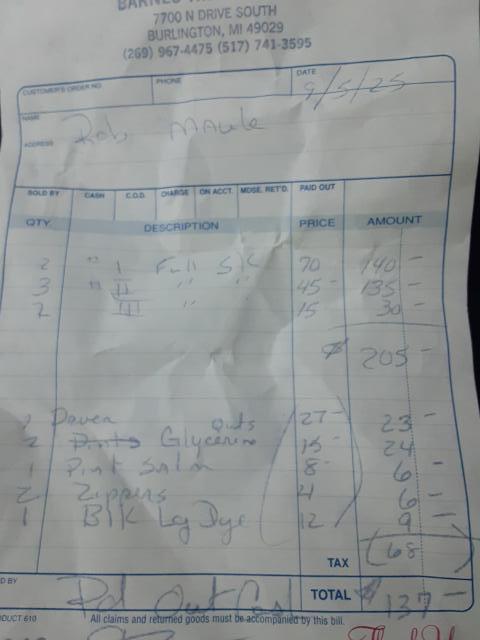 BARNES
7700 N DRIVE SOUTH
BURLINGTON, MI 49029
(269) 967-4475 (517) 741-3595
CUSTOMER'S ORDER NO. PHONE DATE 9/5/25
NAME Rob Maule
ADDRESS
SOLD BY CASH C.O.D. CHARGE ON ACCT. MDSE. RET'D. PAID OUT
QTY. DESCRIPTION PRICE AMOUNT
2 " I Full SK 70 140 -
3 " II " " 45 - 135 -
2 III " 15 30 -
205 -
2 27 - 23 -
2 Pints Qrts Glycerine 15 - 24
1 Pint 8 - 6 -
2 Zippers 4 6 -
1 Blk Lg Dye 12 9 -
TAX (68)
D BY Pd Out TOTAL $137 -
DUCT 610 All claims and returned goods must be accompanied by this bill.